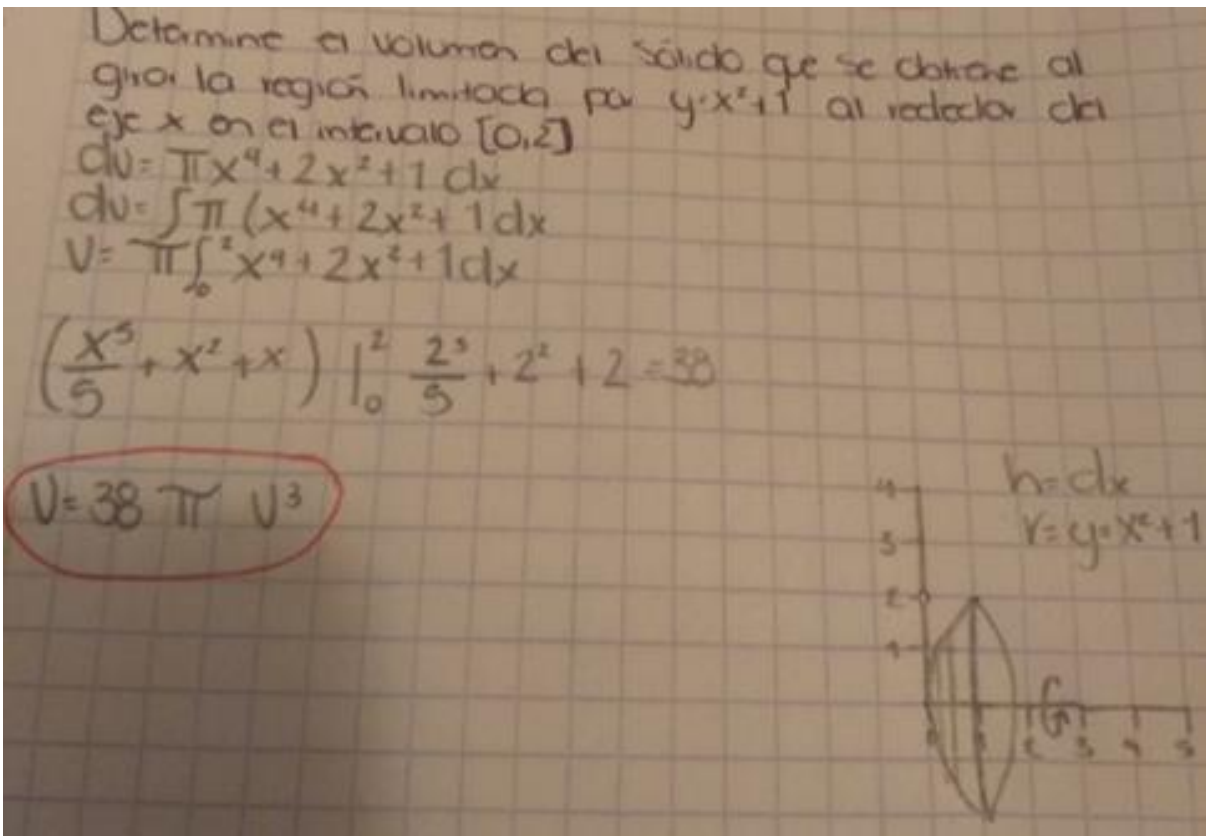 Determine el volumen del sólido que se obtiene al
girar la región limitada por y=x²+1 al rededor del
eje x en el intervalo [0,2]
dv= πx⁴+2x²+1 dx
dv= ∫π (x⁴+2x²+1dx
V= π∫₀²x⁴+2x²+1dx
(x⁵/5 + x² + x) |₀² 2⁵/5 + 2² + 2 = 38
V= 38 π U³
h=dx
r=y=x²+1
4
3
2
1
1 2 3 4 5